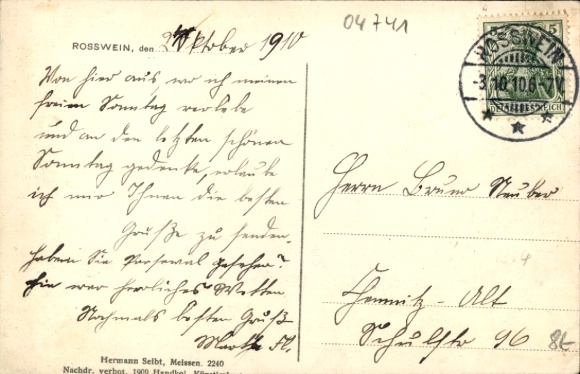 04741
ROSSWEIN, den 2. Oktober 1910
Von hier aus, wo ich meinen
freien Sonntag verlebe
und an den letzten schönen
Sonntag gedenke, erlaube
ich mir Ihnen die besten
Grüße zu senden.
haben Sie Parseval gesehen?
hier war herrliches Wetter.
Nochmals besten Gruß
Hermann Seibt, Meissen. 2240
Nachdr. verbot. 1909 Handkol.
5
DEUTSCHES REICH
ROSSWEIN
3.10.10.6-7
Herrn Bruno Neuber
Chemnitz-Alt
Schulstr 96